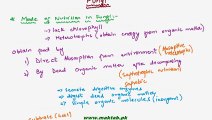 Fungi
* Mode of Nutrition in Fungi:-
→ lack chlorophyll
→ Heterotrophs (obtain energy from organic matter)
Obtain food by
1) Direct Absorption from environment (Absorptive heterotrophs)
2) By Dead organic matter after decomposing
(Saprotrophic nutrition)
→ Secrete digestive enzymes
→ digests dead organic matter
→ Simple organic molecules
www.maktab.pk